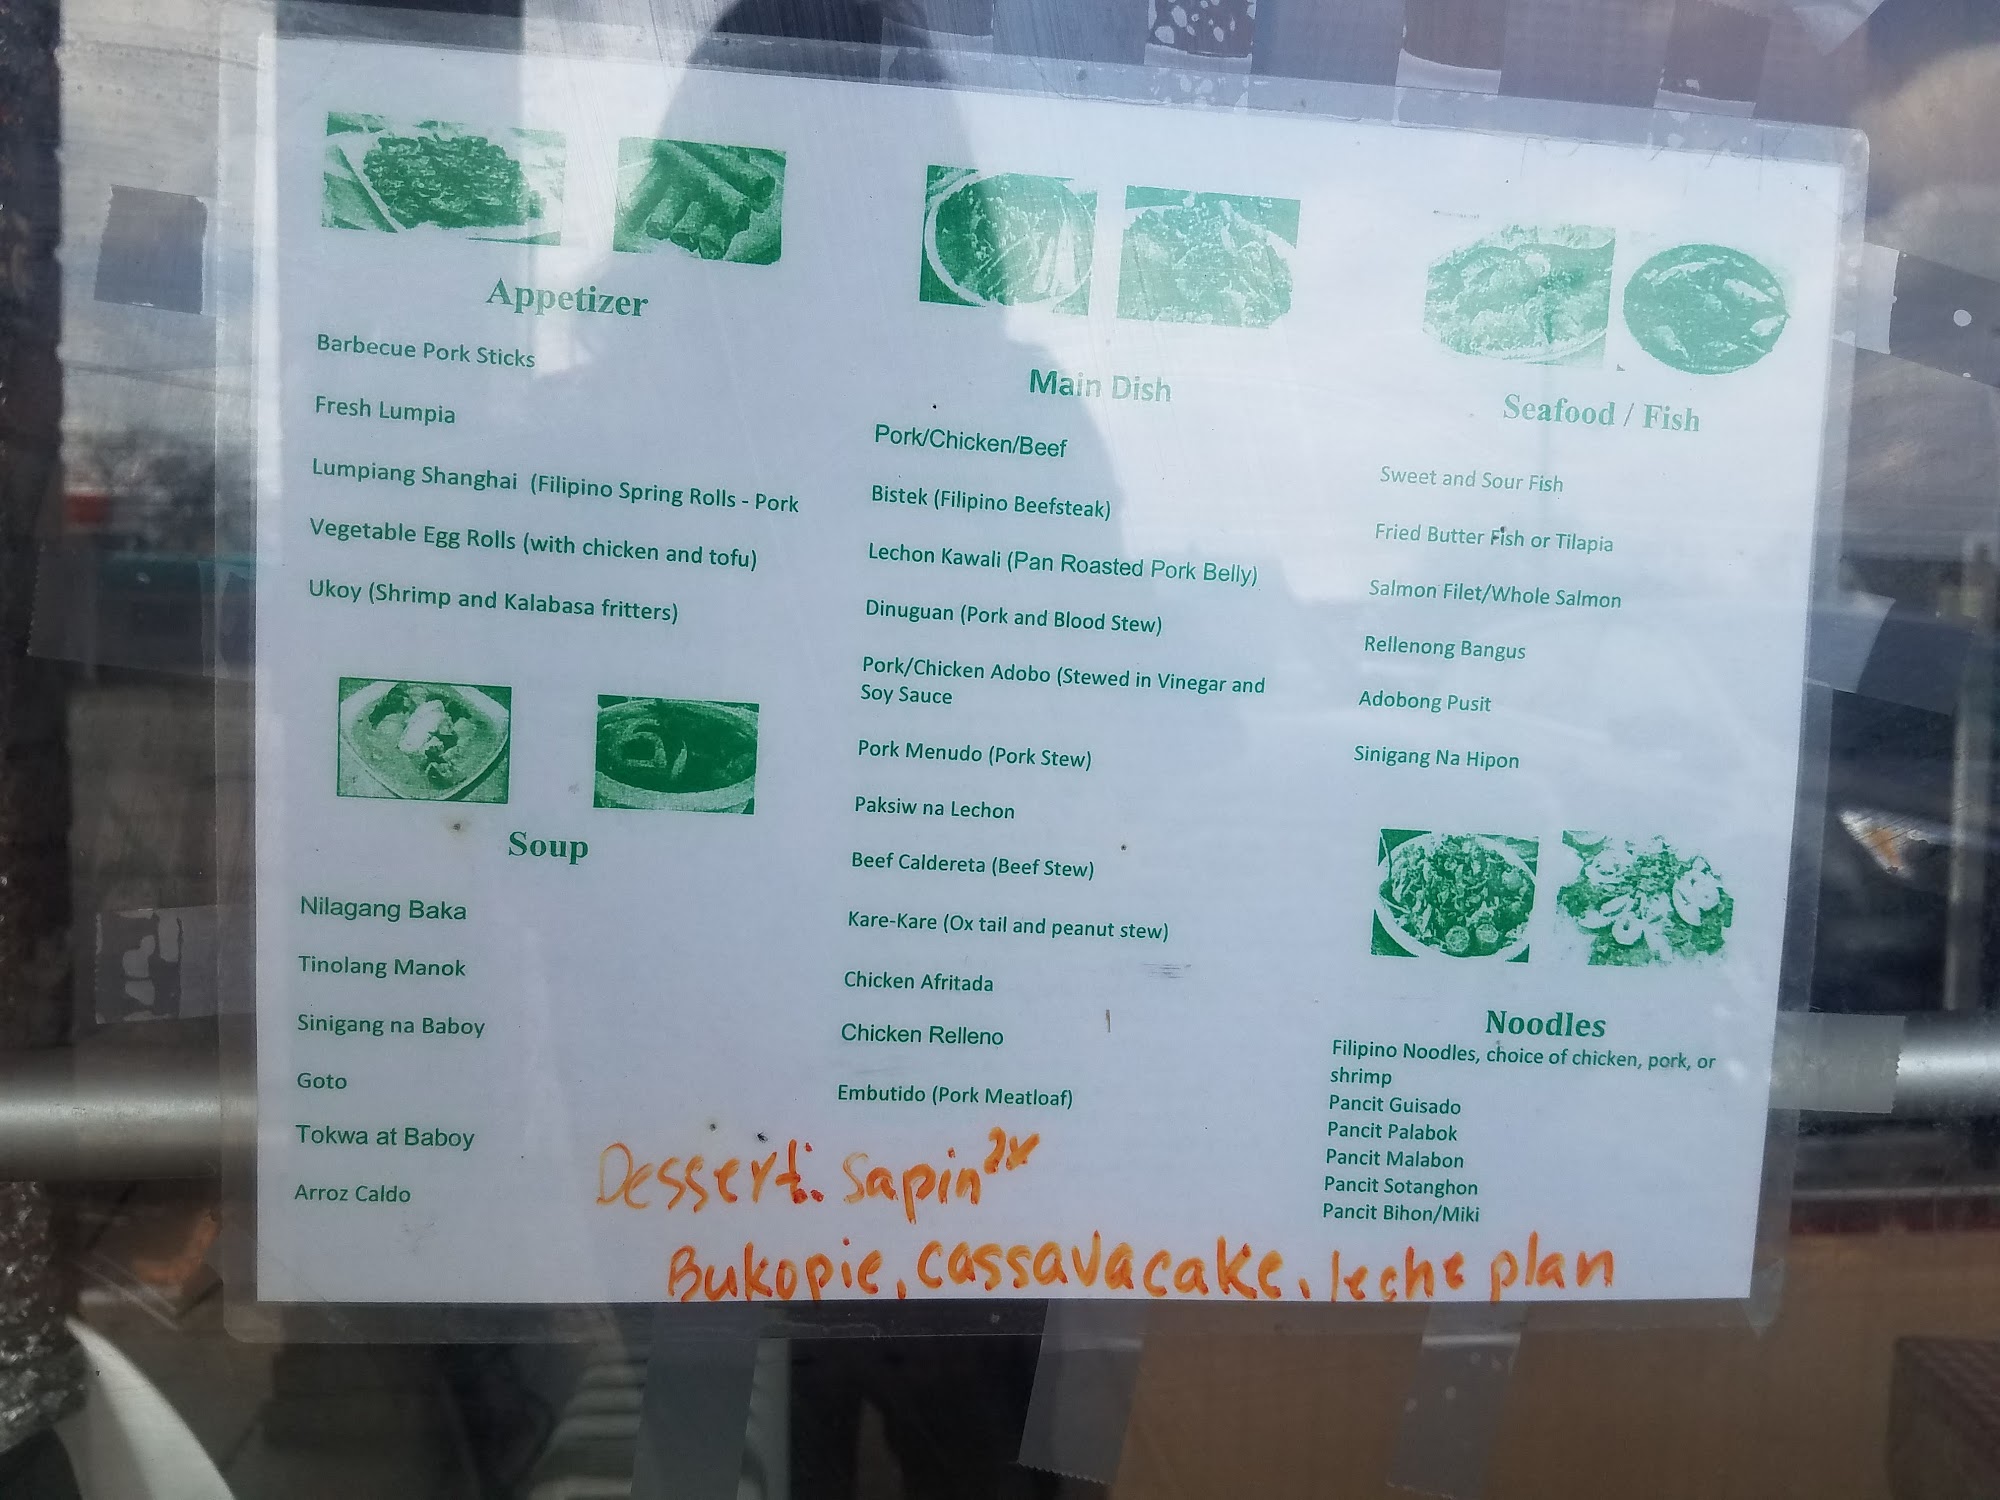 Appetizer
Barbecue Pork Sticks
Fresh Lumpia
Lumpiang Shanghai (Filipino Spring Rolls - Pork
Vegetable Egg Rolls (with chicken and tofu)
Ukoy (Shrimp and Kalabasa fritters)
Soup
Nilagang Baka
Tinolang Manok
Sinigang na Baboy
Goto
Tokwa at Baboy
Arroz Caldo
Main Dish
Pork/Chicken/Beef
Bistek (Filipino Beefsteak)
Lechon Kawali (Pan Roasted Pork Belly)
Dinuguan (Pork and Blood Stew)
Pork/Chicken Adobo (Stewed in Vinegar and
Soy Sauce
Pork Menudo (Pork Stew)
Paksiw na Lechon
Beef Caldereta (Beef Stew)
Kare-Kare (Ox tail and peanut stew)
Chicken Afritada
Chicken Relleno
Embutido (Pork Meatloaf)
Seafood / Fish
Sweet and Sour Fish
Fried Butter Fish or Tilapia
Salmon Filet/Whole Salmon
Rellenong Bangus
Adobong Pusit
Sinigang Na Hipon
Noodles
Filipino Noodles, choice of chicken, pork, or
shrimp
Pancit Guisado
Pancit Palabok
Pancit Malabon
Pancit Sotanghon
Pancit Bihon/Miki
Dessert: Sapin 2x
Bukopie, cassavacake, leche plan